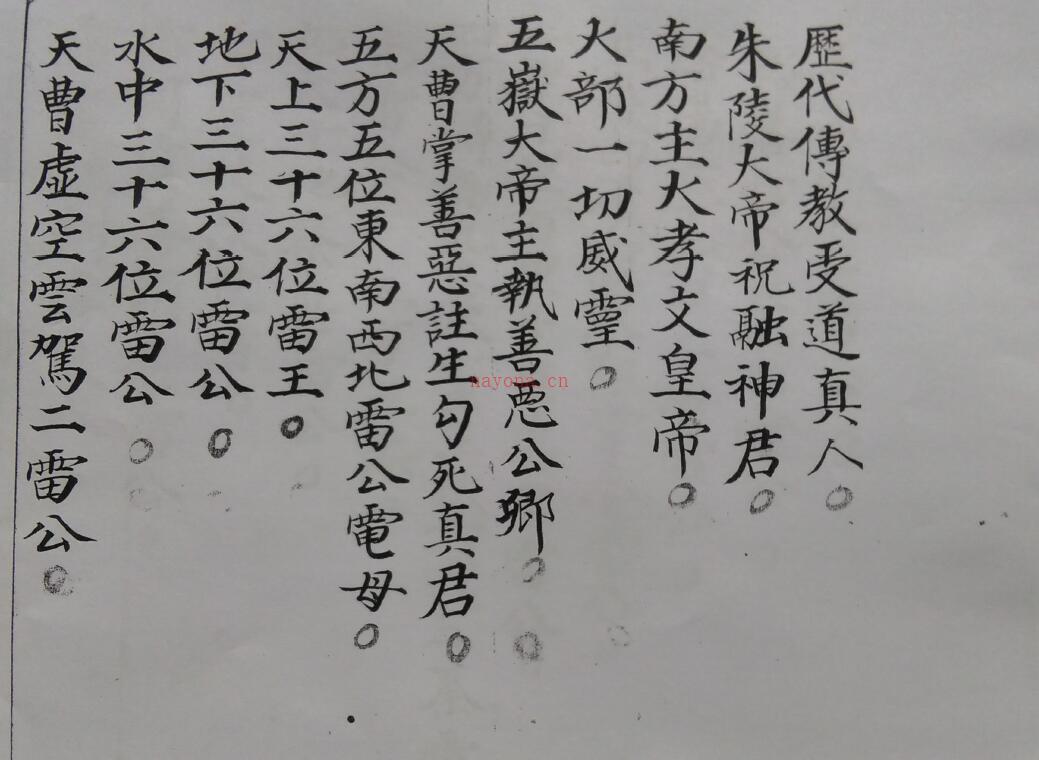 歷代傳教受道真人
朱陵大帝祝融神君
南方主火孝文皇帝
火部一切威靈
五嶽大帝主執善惡公卿
天曹掌善惡註生勾死真君
五方五位東南西北雷公電母
天上三十六位雷王
地下三十六位雷公
水中三十六位雷公
天曹虛空雲駕二雷公
nayona.cn